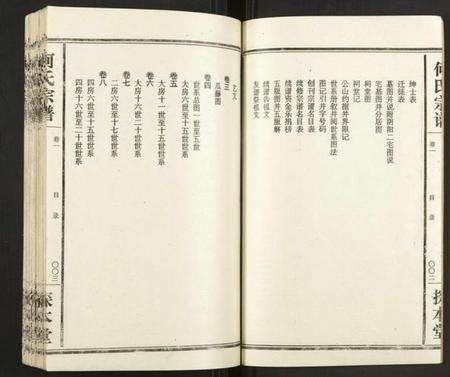 何氏宗譜
卷一
目录
〇〇二
探本堂
绅士表
迁徒表
墓图并说附阴阳二宅图说
宅基图并分居图
祠堂图
祠堂记
公山约据并界限记
世系册叙并阅世系图法
图记引并字号码
创刊宗谱名目表
续修宗谱名目表
续谱资金乐捐榜
五服图并五服解
续谱告祖文
发谱祭祖文
艺文
卷三
瓜藤图
卷四
世系总图一世至五世
大房六世至十五世世系
卷五
大房十一世至十五世世系
卷六
大房十六世二十世世系
卷七
二房六世至十七世世系
卷八
四房六世至十五世世系
四房十六世至二十世世系
何氏宗譜
卷一
目录
〇〇三
探本堂